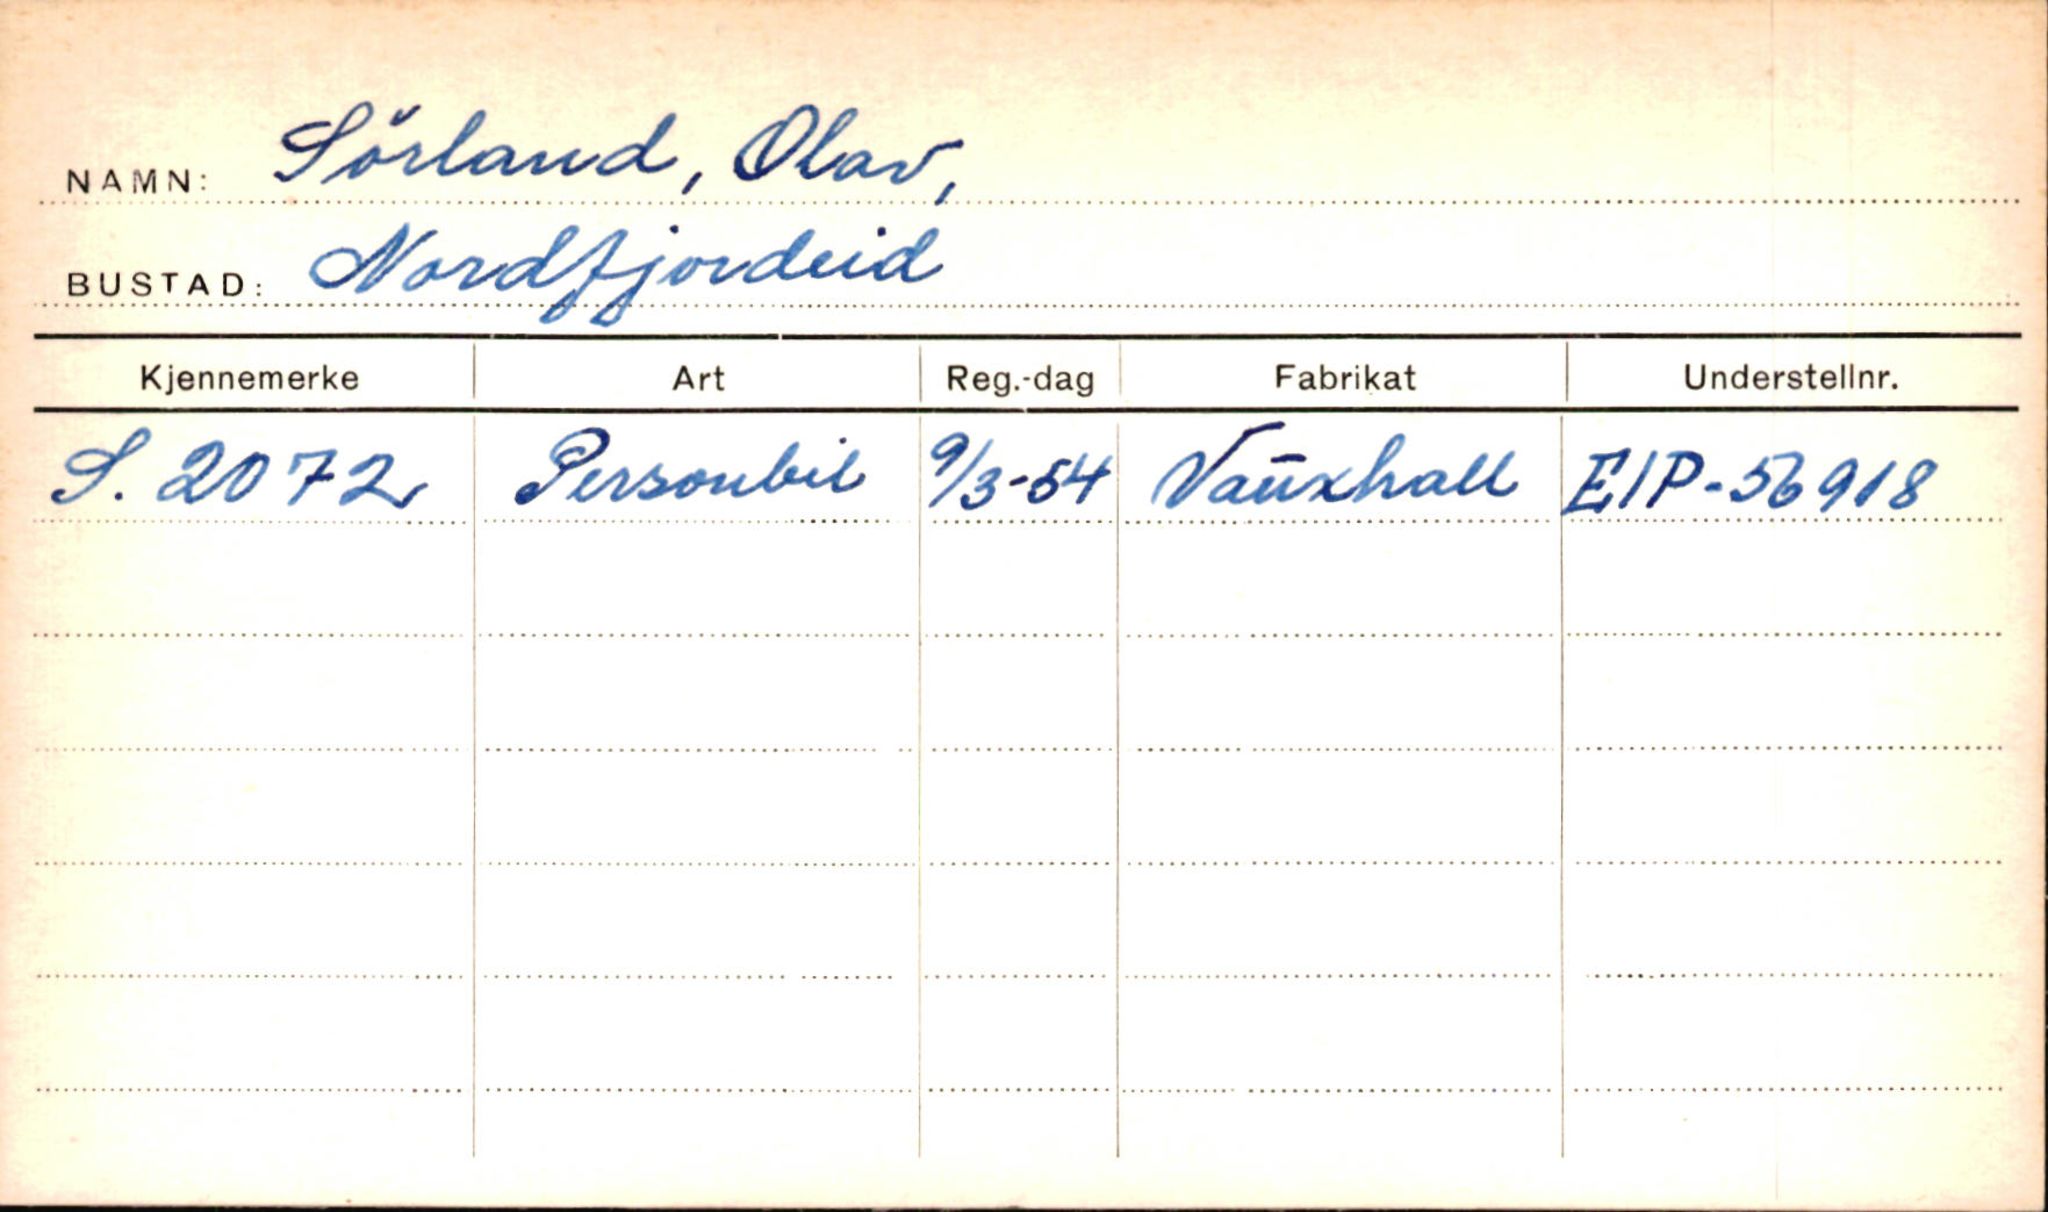 NAMN: Sörland, Olav,
BUSTAD: Nordfjordeid
Kjennemerke Art Reg.-dag Fabrikat Understellnr.
S. 2072 Personbil 9/3-54 Vauxhall EIP-56918